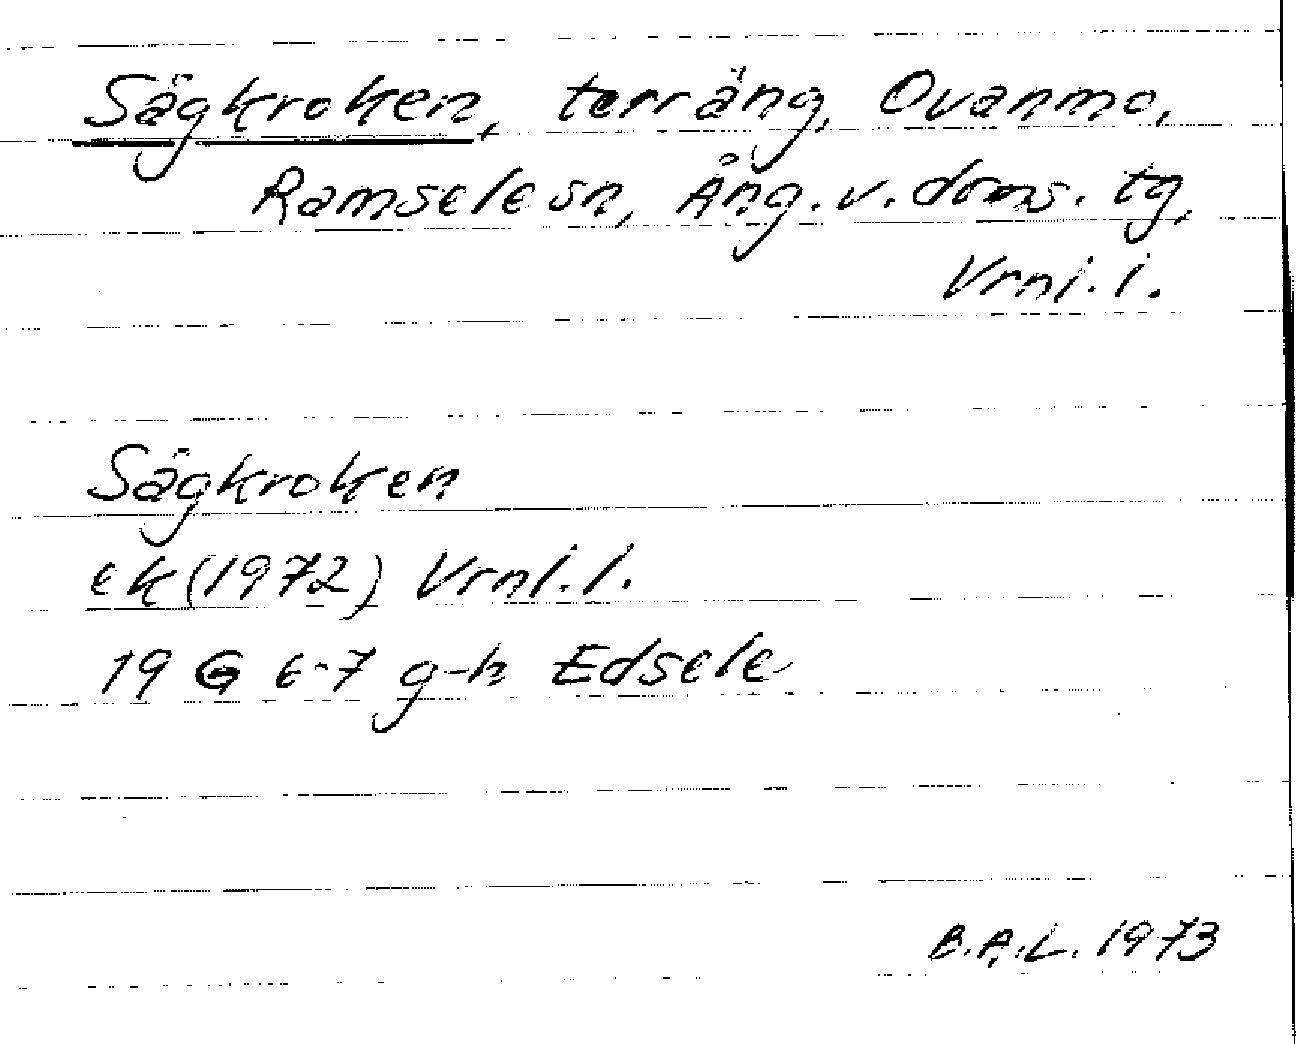 Sågkroken, terräng, Ovanmo,
Ramsele sn, Ång. v. doms. tg,
Vrnl. l.
Sågkroken
ek (1972) Vrnl. l.
19 G 6-7 g-h Edsele
B.A.L. 1973